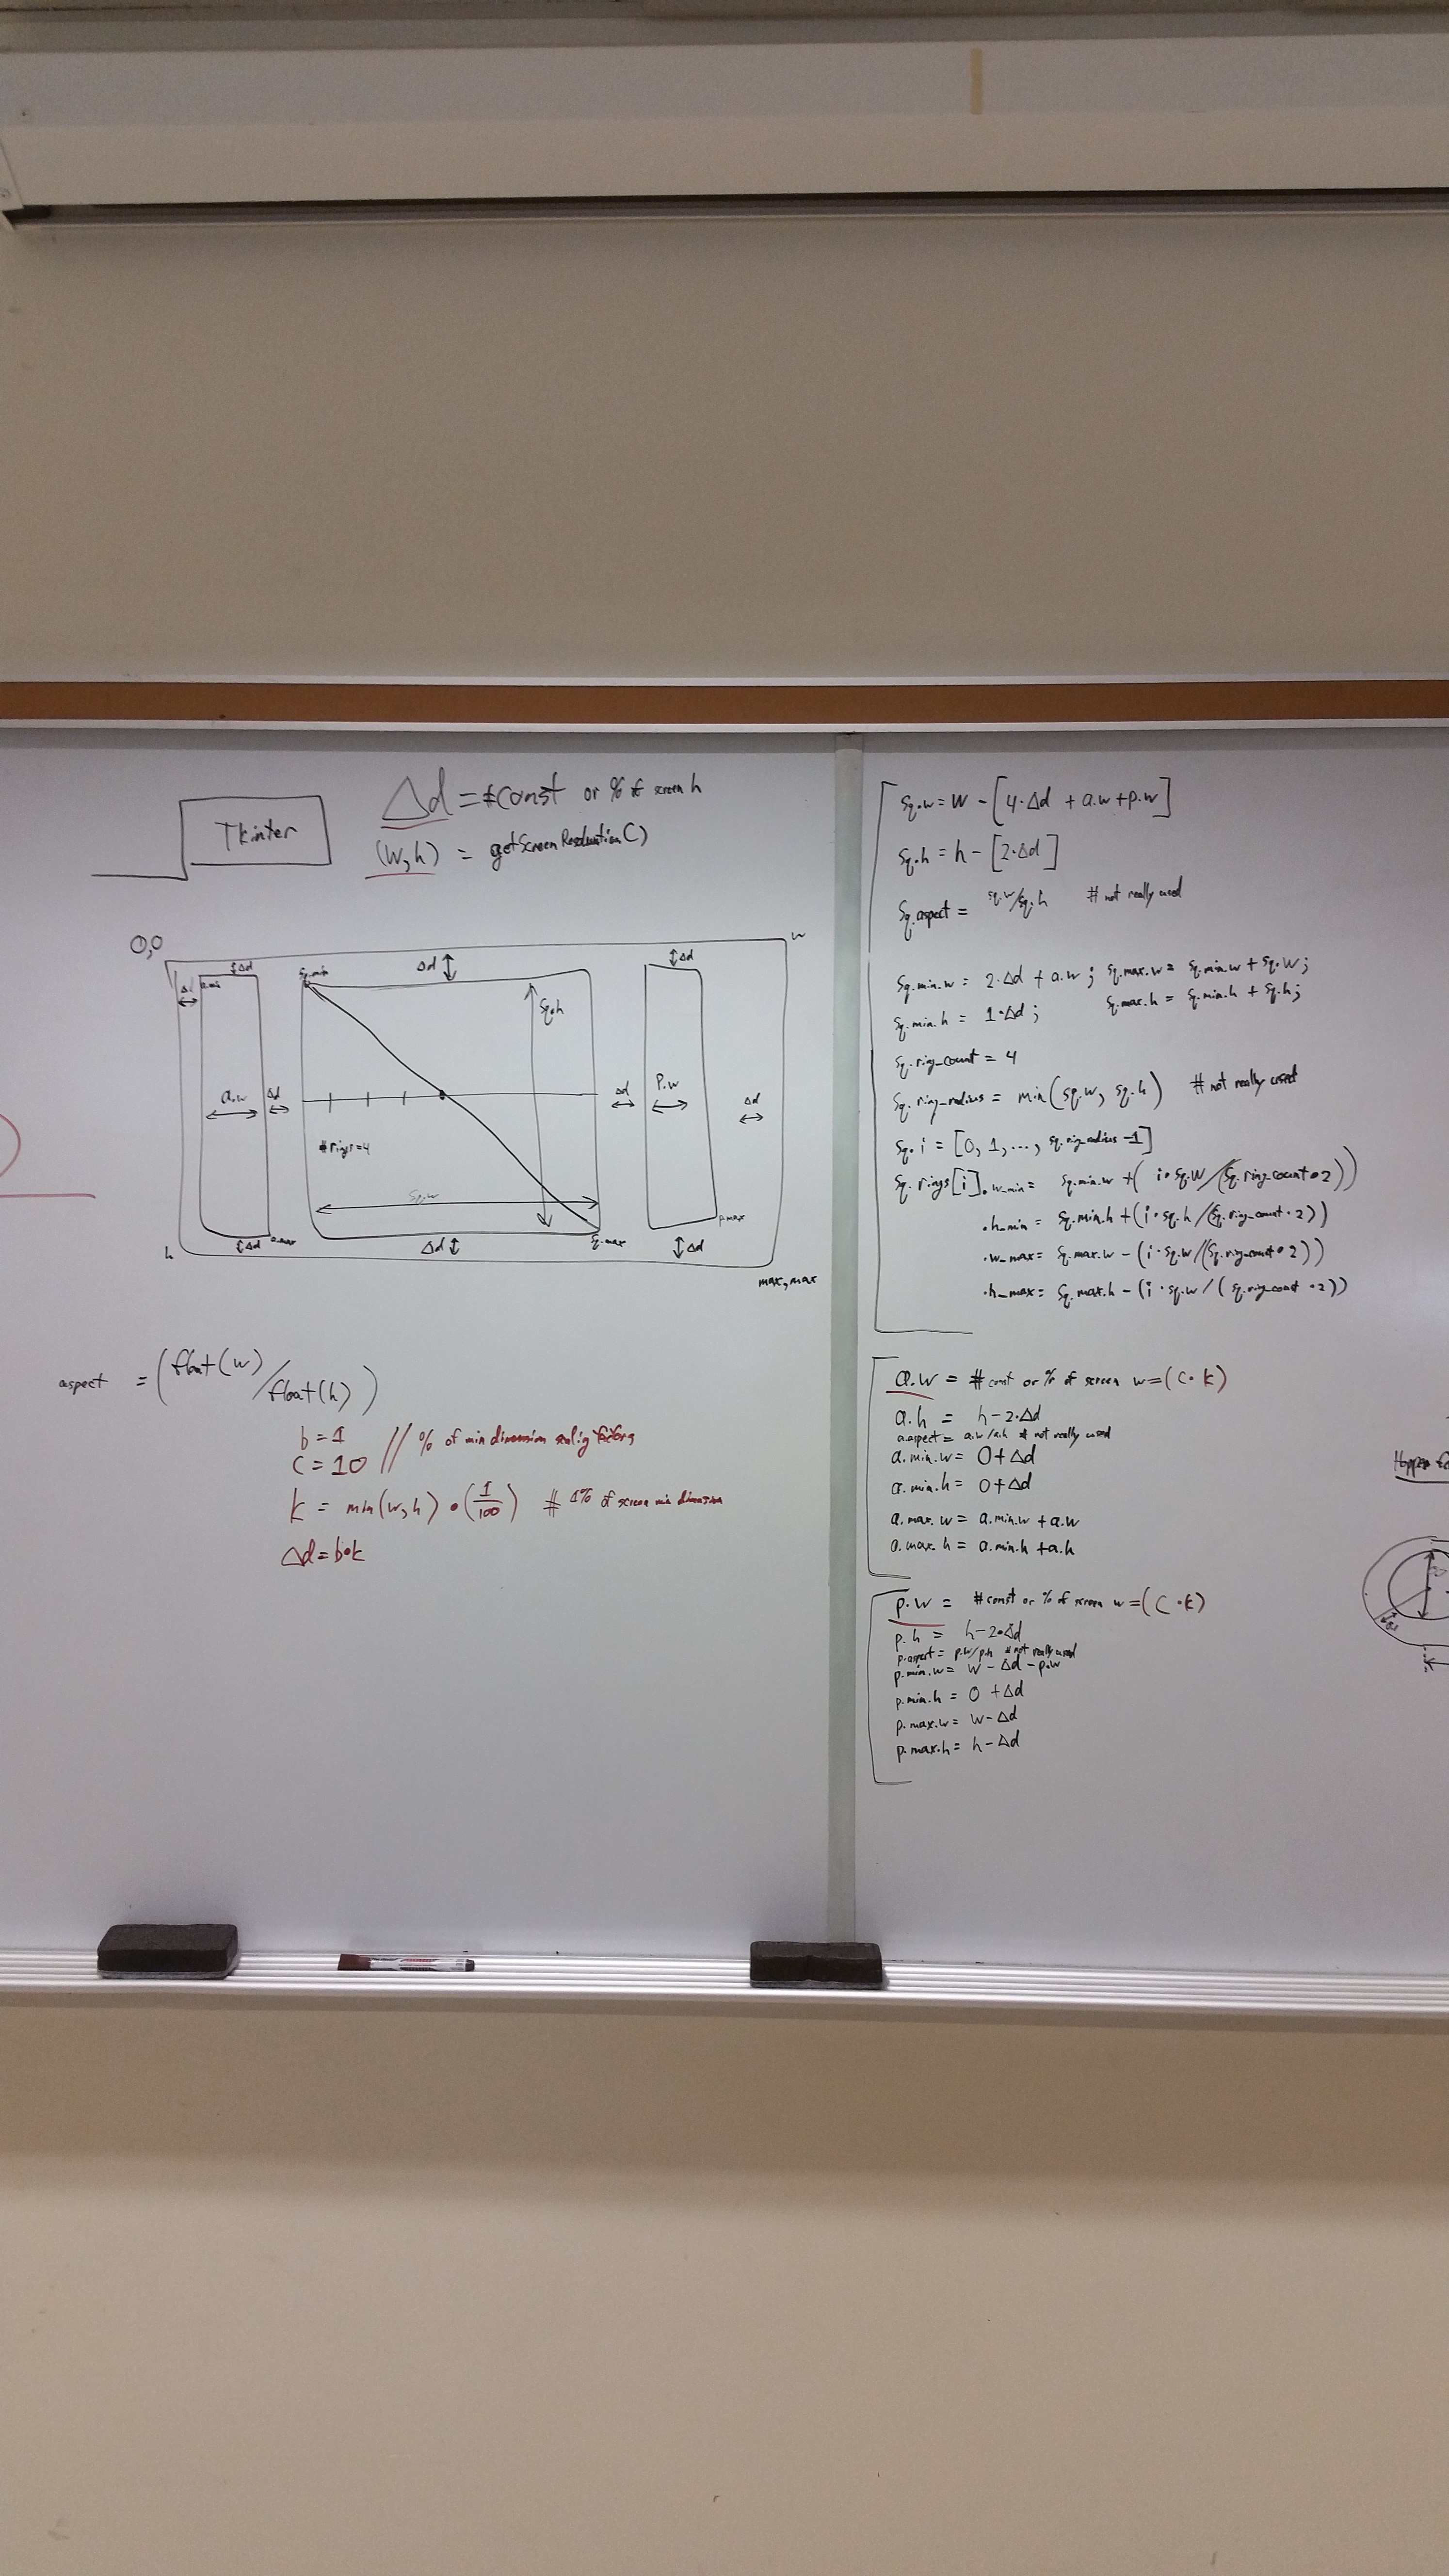 Tkinter
Δd = #const or % of screen h
(w,h) = getScreenResolution()
0,0
w
Δd
a.min
sq.min
Δd
Δd
Δd
sq.h
a.w
Δd
Δd
p.w
Δd
#rings=4
sq.w
p.max
h
Δd
a.max
Δd
sq.max
Δd
max,max
aspect = (float(w)/float(h))
b = 1 // % of min dimension scaling factors
c = 10
k = min(w,h) • (1/100) # 1% of screen min dimension
Δd = b•k
sq.w = w - [4·Δd + a.w + p.w]
sq.h = h - [2·Δd]
sq.aspect = sq.w/sq.h # not really used
sq.min.w = 2·Δd + a.w ; sq.max.w = sq.min.w + sq.w;
sq.min.h = 1·Δd ; sq.max.h = sq.min.h + sq.h;
sq.ring_count = 4
sq.ring_radius = min(sq.w, sq.h) # not really used
sq.i = [0, 1, ..., sq.ring_radius -1]
sq.rings[i].w_min = sq.min.w + (i•sq.w/(sq.ring_count•2))
.h_min = sq.min.h + (i•sq.h/(sq.ring_count·2))
.w_max = sq.max.w - (i·sq.w/(sq.ring_count•2))
.h_max = sq.max.h - (i·sq.w/(sq.ring_count·2))
a.w = # const or % of screen w = (c·k)
a.h = h - 2·Δd
a.aspect = a.w/a.h # not really used
a.min.w = 0 + Δd
a.min.h = 0 + Δd
a.max.w = a.min.w + a.w
a.max.h = a.min.h + a.h
p.w = #const or % of screen w = (c·k)
p.h = h - 2•Δd
p.aspect = p.w/p.h # not really used
p.min.w = w - Δd - p.w
p.min.h = 0 + Δd
p.max.w = w - Δd
p.max.h = h - Δd